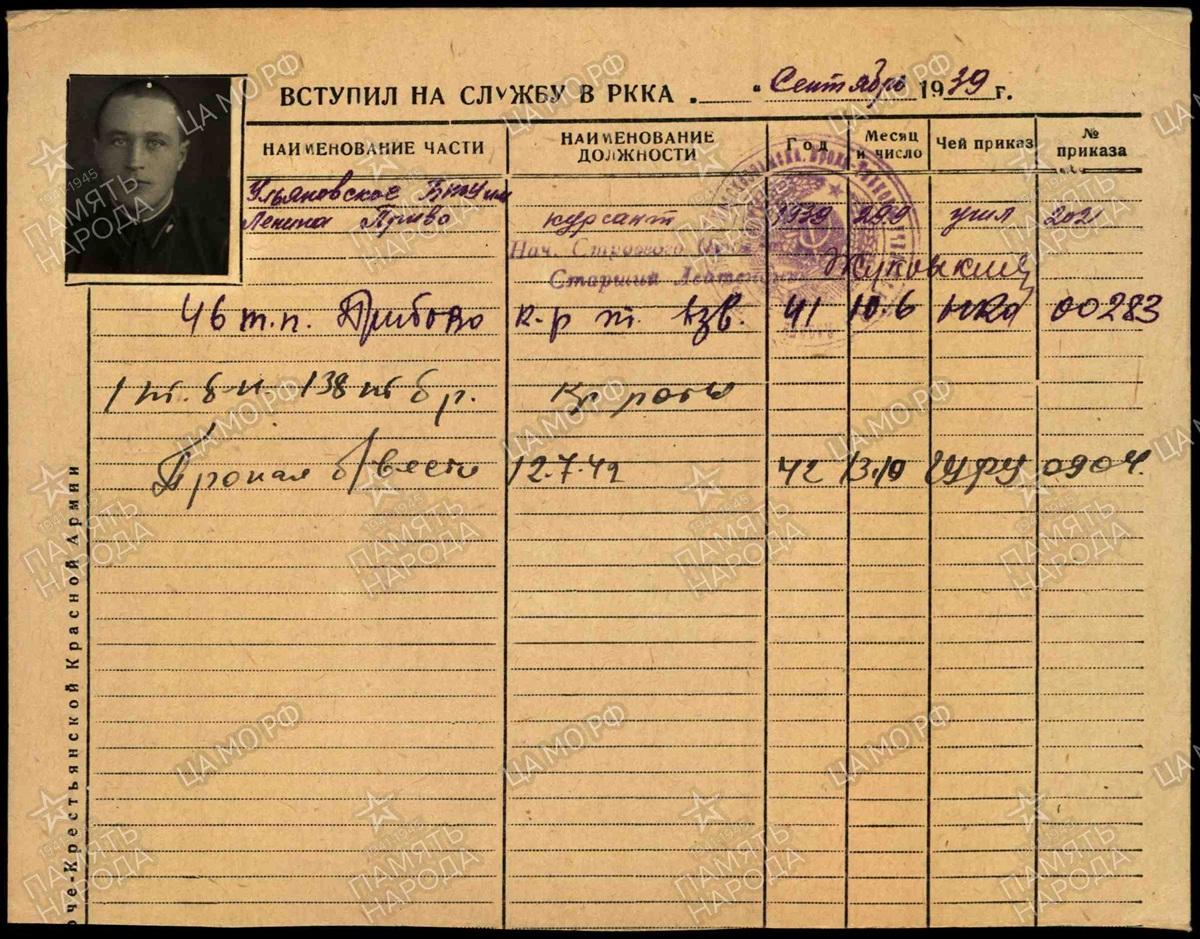 ВСТУПИЛ НА СЛУЖБУ В РККА . " Сентябрь 1939 г.
НАИМЕНОВАНИЕ ЧАСТИ НАИМЕНОВАНИЕ ДОЛЖНОСТИ Год Месяц и число Чей приказ № приказа
Ульяновское БТУ им
Ленина Приво курсант 1939 29.9 2021
Нач. Строевого
Старший Лейтенант
46 т.п. Прибово к-р т. взв. 41 10.6 НКО 00283
1 т. б-н 138 т бр. к-р роты
Пропал б/вести 12.7.42 42 13.10 ГУФУ 0904.
оче-Крестьянской Красной Армии
ПАМЯТЬ НАРОДА
1941-1945
ЦАМО.РФ